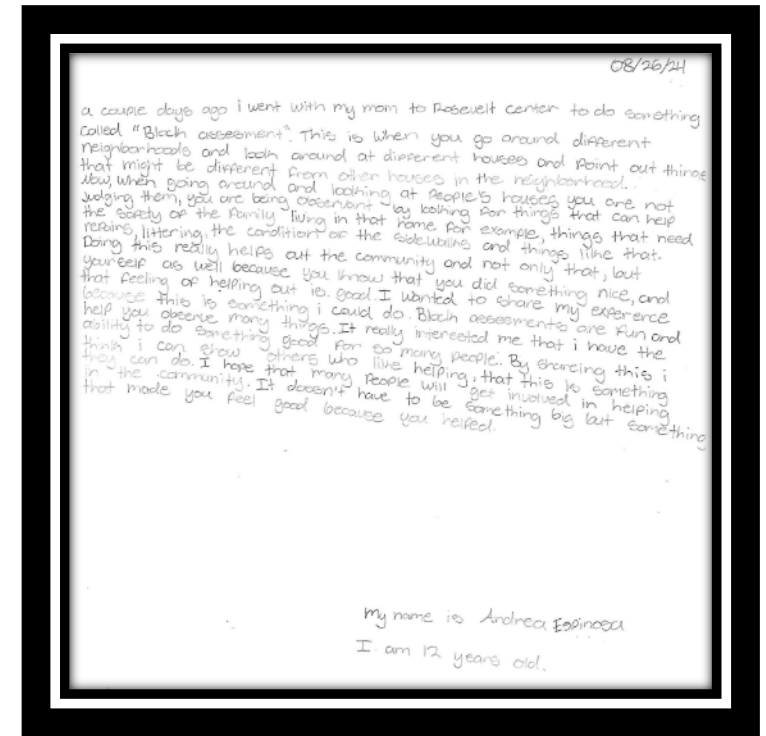 08/26/24
a couple days ago i went with my mom to Rosevelt center to do something
called "Block assesment". This is when you go around different
neighborhoods and look around at different houses and point out things
that might be different from other houses in the neighborhood.
Now, when going around and looking at People's houses you are not
judging them, you are being observant by looking for things that can help
the safety of the family living in that home for example, things that need
repairs, littering, the condition of the sidewalks and things like that.
Doing this really helps out the community and not only that, but
yourself as well because you know that you did something nice, and
that feeling of helping out is good. I wanted to share my experence
because this is something i could do. Block assesments are fun and
help you observe many things. It really interested me that i have the
ability to do something good for so many people. By shareing this i
think i can show others who like helping, that this is something
they can do. I hope that many People will get involved in helping
in the community. It doesn't have to be something big but something
that made you feel good because you helped.
My name is Andrea Espinosa
I am 12 years old.